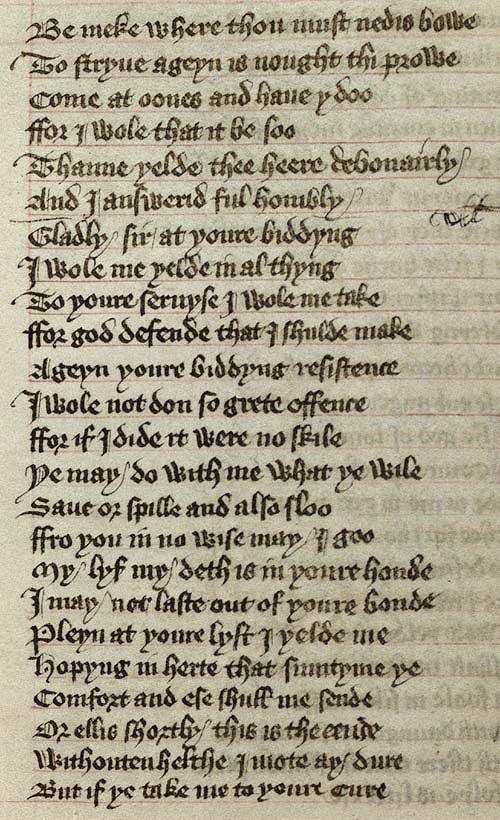 Be meke where thou must nedis bowe
To stryue ageyn is nought thi prowe
Come at oones and haue ydoo
ffor I wole that it be soo
Thanne yelde thee heere debonairly
And I answerid ful hombly
Gladly sir at youre biddyng
I wole me yelde in al thyng
To youre seruyse I wole me take
ffor god defende that I shulde make
Ageyn youre biddyng resistence
I wole not don so grete offence
ffor if I dide it were no skile
Ye may do with me what ye wile
Saue or spille and also sloo
ffro you in no wise may I goo
My lyf my deth is in youre honde
I may not laste out of youre bonde
Pleyn at youre lyst I yelde me
Hopyng in herte that sumtyme ye
Comfort and ese shull me sende
Or ellis shortly this is the eende
Withouten helthe I mote ay dure
But if ye take me to youre cure